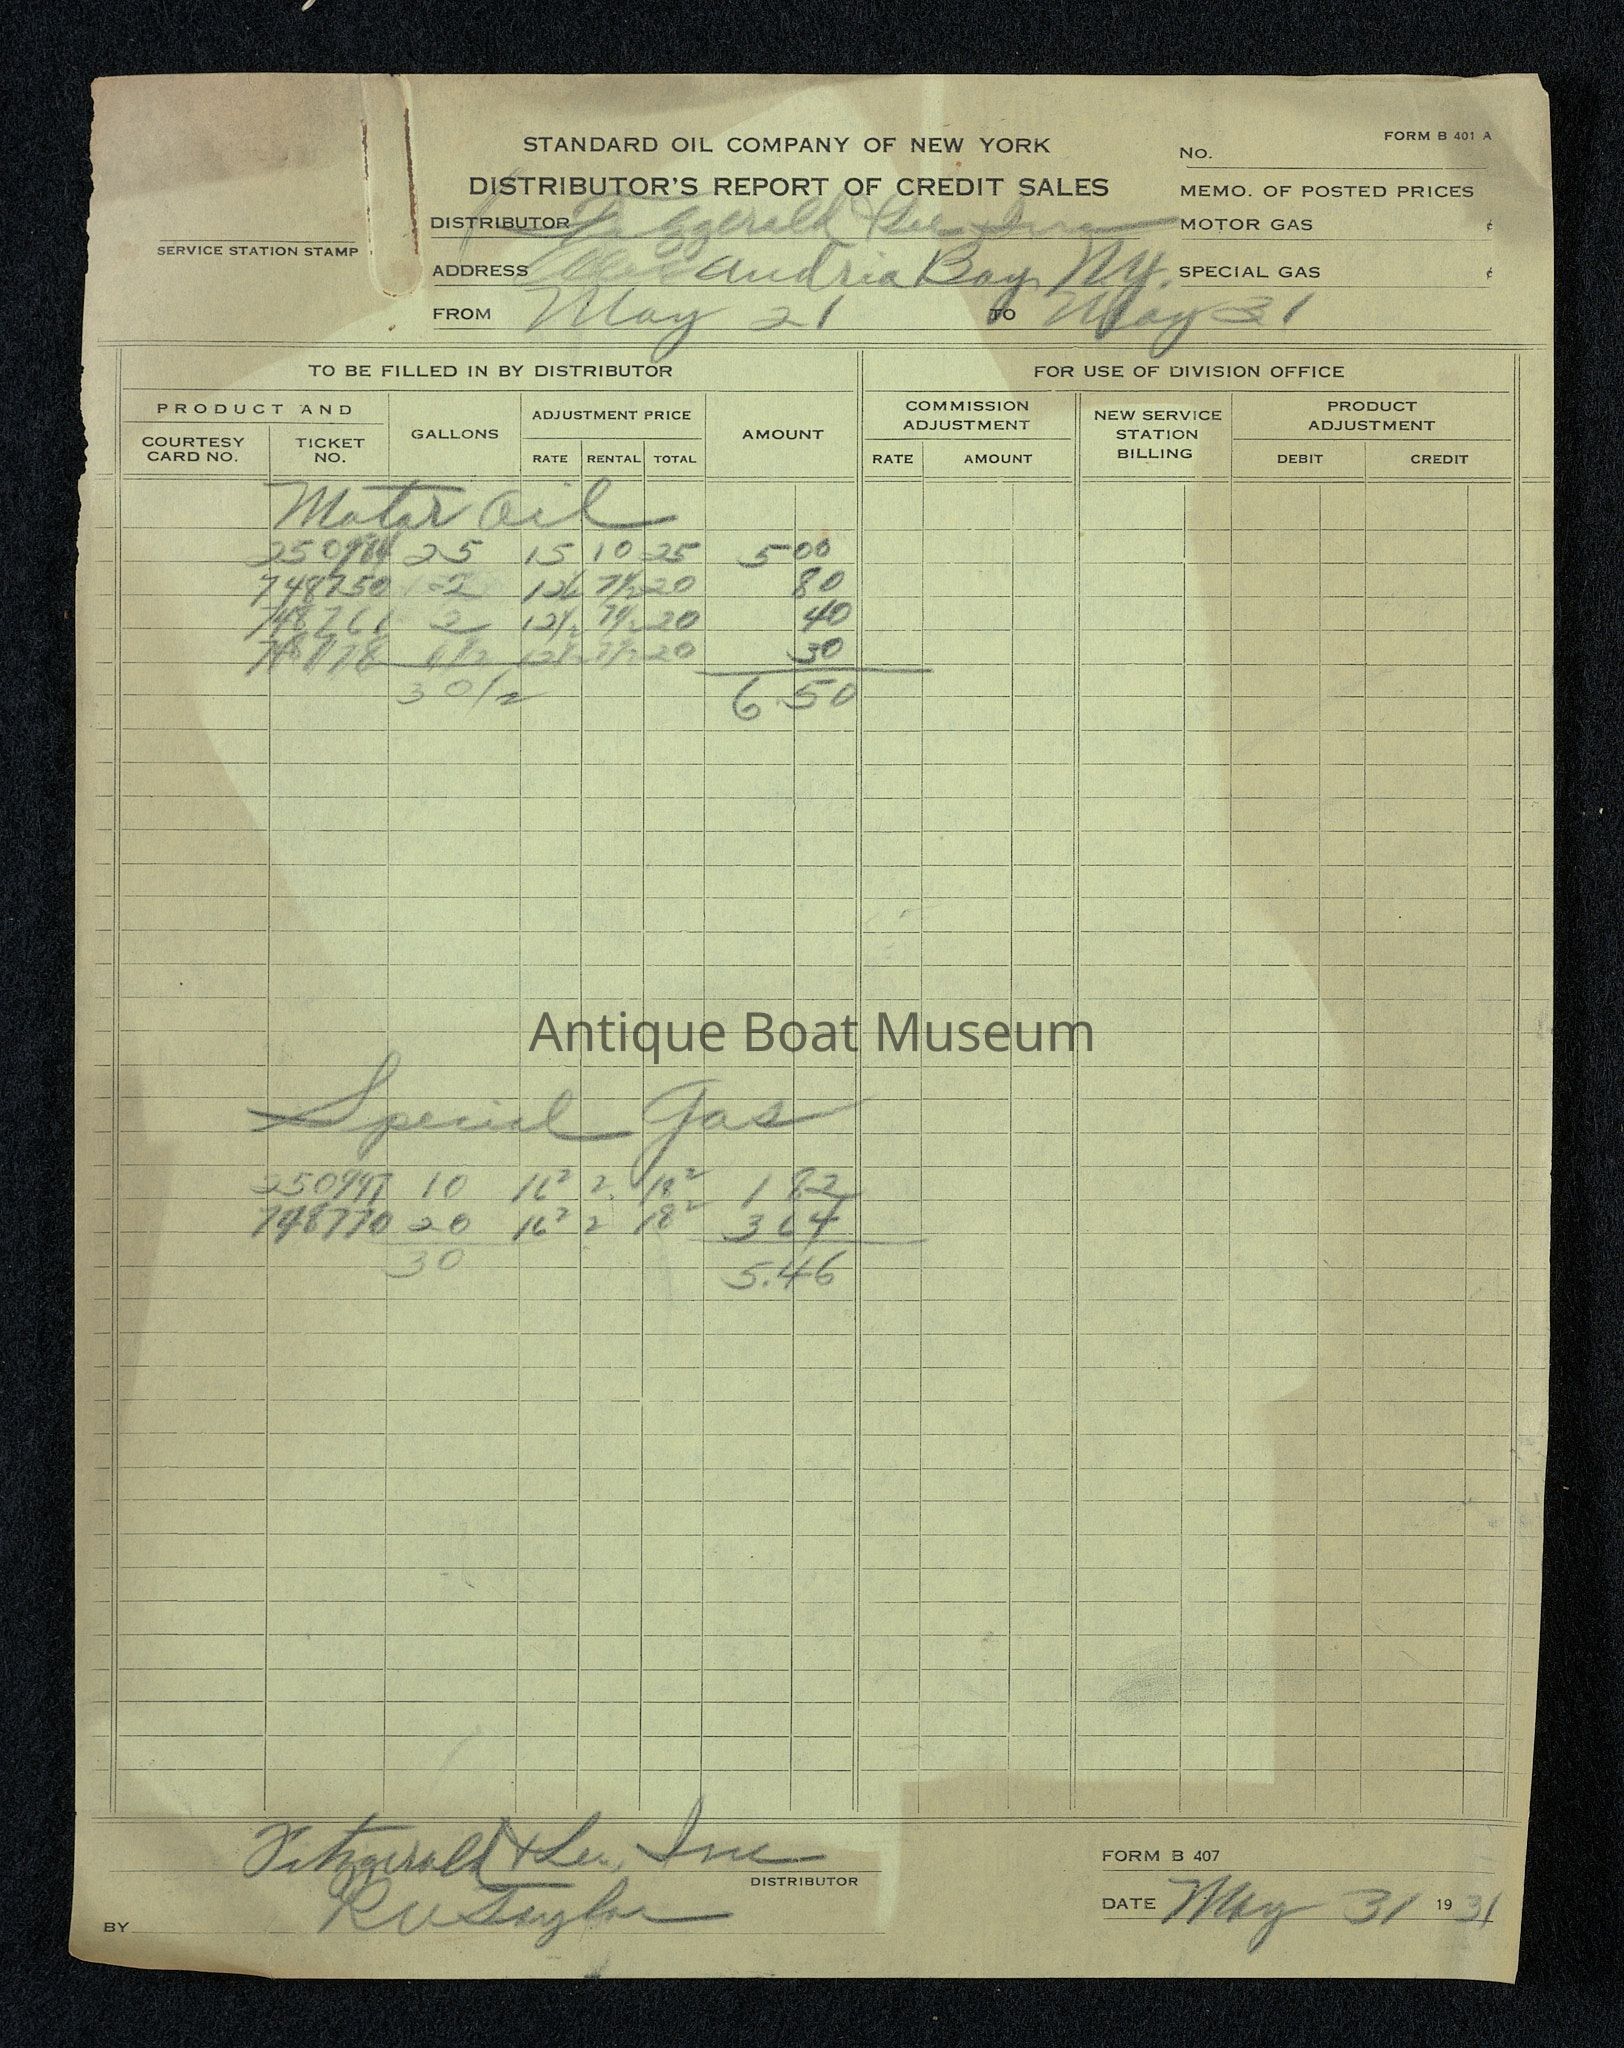 FORM B 401 A
STANDARD OIL COMPANY OF NEW YORK
No.
DISTRIBUTOR'S REPORT OF CREDIT SALES
MEMO. OF POSTED PRICES
DISTRIBUTOR Fitzgerald & Lee Inc
MOTOR GAS ¢
SERVICE STATION STAMP
ADDRESS Alexandria Bay, N.Y.
SPECIAL GAS ¢
FROM May 21 TO May 31
TO BE FILLED IN BY DISTRIBUTOR FOR USE OF DIVISION OFFICE
PRODUCT AND
COURTESY CARD NO. TICKET NO. GALLONS ADJUSTMENT PRICE RATE RENTAL TOTAL AMOUNT COMMISSION ADJUSTMENT RATE AMOUNT NEW SERVICE STATION BILLING PRODUCT ADJUSTMENT DEBIT CREDIT
Motor Oil
25 15 10 25 5 00
748750 2 12½ 7½ 20 80
748761 2 12½ 7½ 20 40
1½ 12½ 7½ 20 30
30½ 6.50
Antique Boat Museum
Special Gas
10 16² 2 18² 1 82
748770 20 16² 2 18² 3 64
30 5.46
Fitzgerald & Lee, Inc
DISTRIBUTOR
FORM B 407
BY R W Taylor
DATE May 31 1931